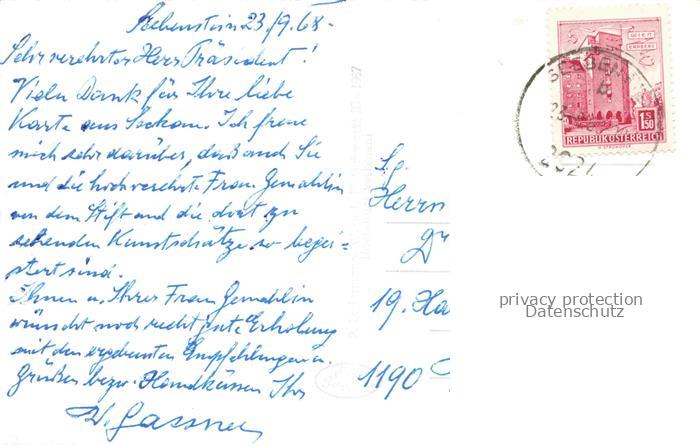 Seebenstein 23./9.68.
Sehr verehrter Herr Präsident!
Vielen Dank für Ihre liebe
Karte aus Seckau. Ich freue
mich sehr darüber, daß auch Sie
und die hochverehrte Frau Gemahlin
von dem Stift und die dort zu
sehenden Kunstschätze so begei=
stert sind.
Ihnen u. Ihrer Frau Gemahlin
wünscht noch recht gute Erholung
mit den ergebensten Empfehlungen u.
Grüßen bezw. Handküssen Ihr
W. Gassner
Sg.
Herrn
Dr
19. Ha
1190
WIEN
ERDBERG
S
1.50
REPUBLIK ÖSTERREICH
SEEBEN
privacy protection
Datenschutz